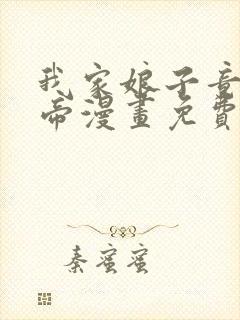 我家娘子竟
帝漫畫免費
秦蜜蜜